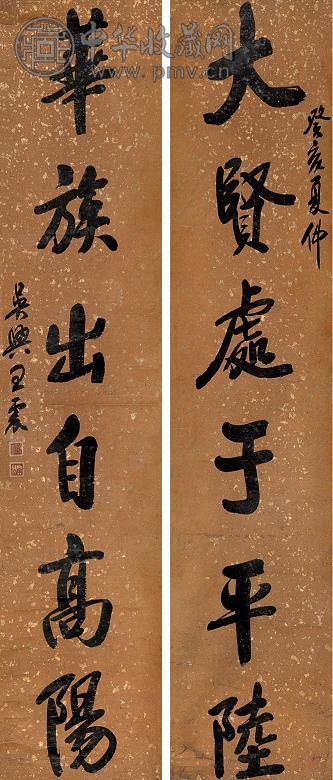 中华收藏网
www.pmv.cn
大賢處于平陸
癸亥夏佛
華族出自高陽
吳興王震